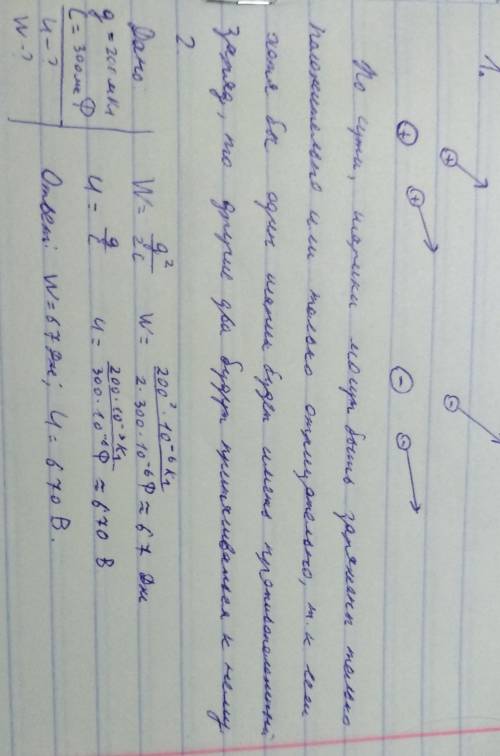 1.
+ +
+
- -
-
По сути, шарики могут быть заряжены только
положительно или только отрицательно, т.к если
хотя бы один шарик будет иметь противоположный
заряд, то другие два будут притягиваться к нему.
2
Дано:
q = 200 мКл
C = 300 мкФ
U - ?
W - ?
W = q²/2C W = 200²·10⁻⁶ Кл/2·300·10⁻⁶ Ф ≈ 67 Дж
U = q/C U = 200·10⁻³ Кл/300·10⁻⁶ Ф ≈ 670 В
Ответ: W = 67 Дж; U = 670 В.